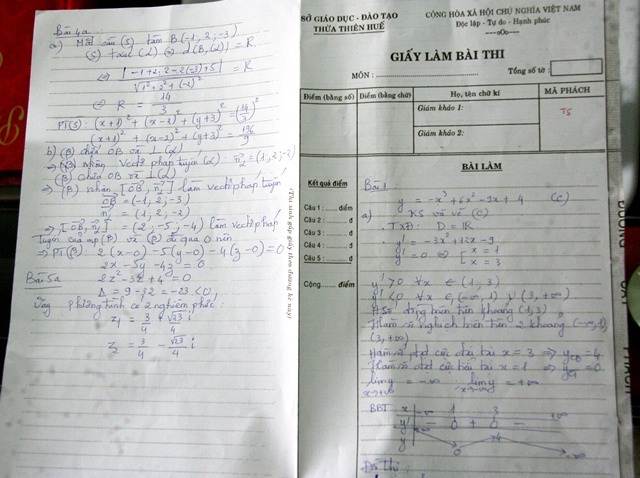 Bài 4a:
a) Mặt cầu (S) tâm B(-1, 2, -3)
(S) t/xúc (α) ⇔ d(B,(α)) = R
⇔ |-1+2.2-2(-3)+5| / √(1²+2²+(-2)²) = R
⇔ R = 14/3
PT(S): (x+1)² + (x-2)² + (y+3)² = (14/3)²
(x+1)² + (x-2)² + (y+3)² = 196/9
b) (β) chứa OB và ⊥ (α)
(β) nhận vectơ pháp tuyến (α): n₂ = (1, 2, -2)
(β) chứa OB và ⊥ (α)
→ (β) nhận [OB, n₂] làm vectơ pháp tuyến
OB = (-1, 2, -3)
n = (1, 2, -2)
→ [OB, n₂] = (2, -5, -4) làm vectơ pháp
tuyến của mp (β) và (β) đi qua O nên
→ PT(β): 2(x-0) - 5(y-0) - 4(z-0) = 0
2x - 5y - 4z = 0
Bài 5a
2z² - 3z + 4 = 0
Δ = 9 - 32 = -23 < 0
phương trình có 2 nghiệm phức:
z₁ = 3/4 + √23/4 i
z₂ = 3/4 - √23/4 i
(Thí sinh gấp giấy theo đường kẻ này)
SỞ GIÁO DỤC - ĐÀO TẠO
THỪA THIÊN HUẾ
CỘNG HÒA XÃ HỘI CHỦ NGHĨA VIỆT NAM
Độc lập - Tự do - Hạnh phúc
---oOo---
GIẤY LÀM BÀI THI
MÔN :
Tổng số tờ :
Điểm (bằng số)
Điểm (bằng chữ)
Họ, tên chữ kí
MÃ PHÁCH
Giám khảo 1:
T5
Giám khảo 2:
BÀI LÀM
Kết quả điểm
Câu 1 : ........ điểm
Câu 2 : ........ đ
Câu 3 : ........ đ
Câu 4 : ........ đ
Câu 5 : ........ đ
Cộng........ điểm
Bài 1
y = -x³ + 6x² - 9x + 4 (C)
a) KS và vẽ (C)
TXĐ: D = R
y' = -3x² + 12x - 9
y' = 0 ⇔ [ x = 1
x = 3
y' > 0 ∀x ∈ (1, 3)
y' < 0 ∀x ∈ (-∞, 1) ∪ (3, +∞)
HSố đồng biến trên khoảng (1, 3)
Hàm số nghịch biến trên 2 khoảng (-∞, 1),
(3, +∞)
Hàm số đạt cực đại tại x = 3 ⇒ yCĐ = 4
Hàm số đạt cực tiểu tại x = 1 ⇒ yCT = 0
lim y = -∞ lim y = +∞
x→+∞ x→-∞
BBT x -∞ 1 3 +∞
y' - 0 + 0 -
y +∞ 0 4 -∞
Đồ thị: